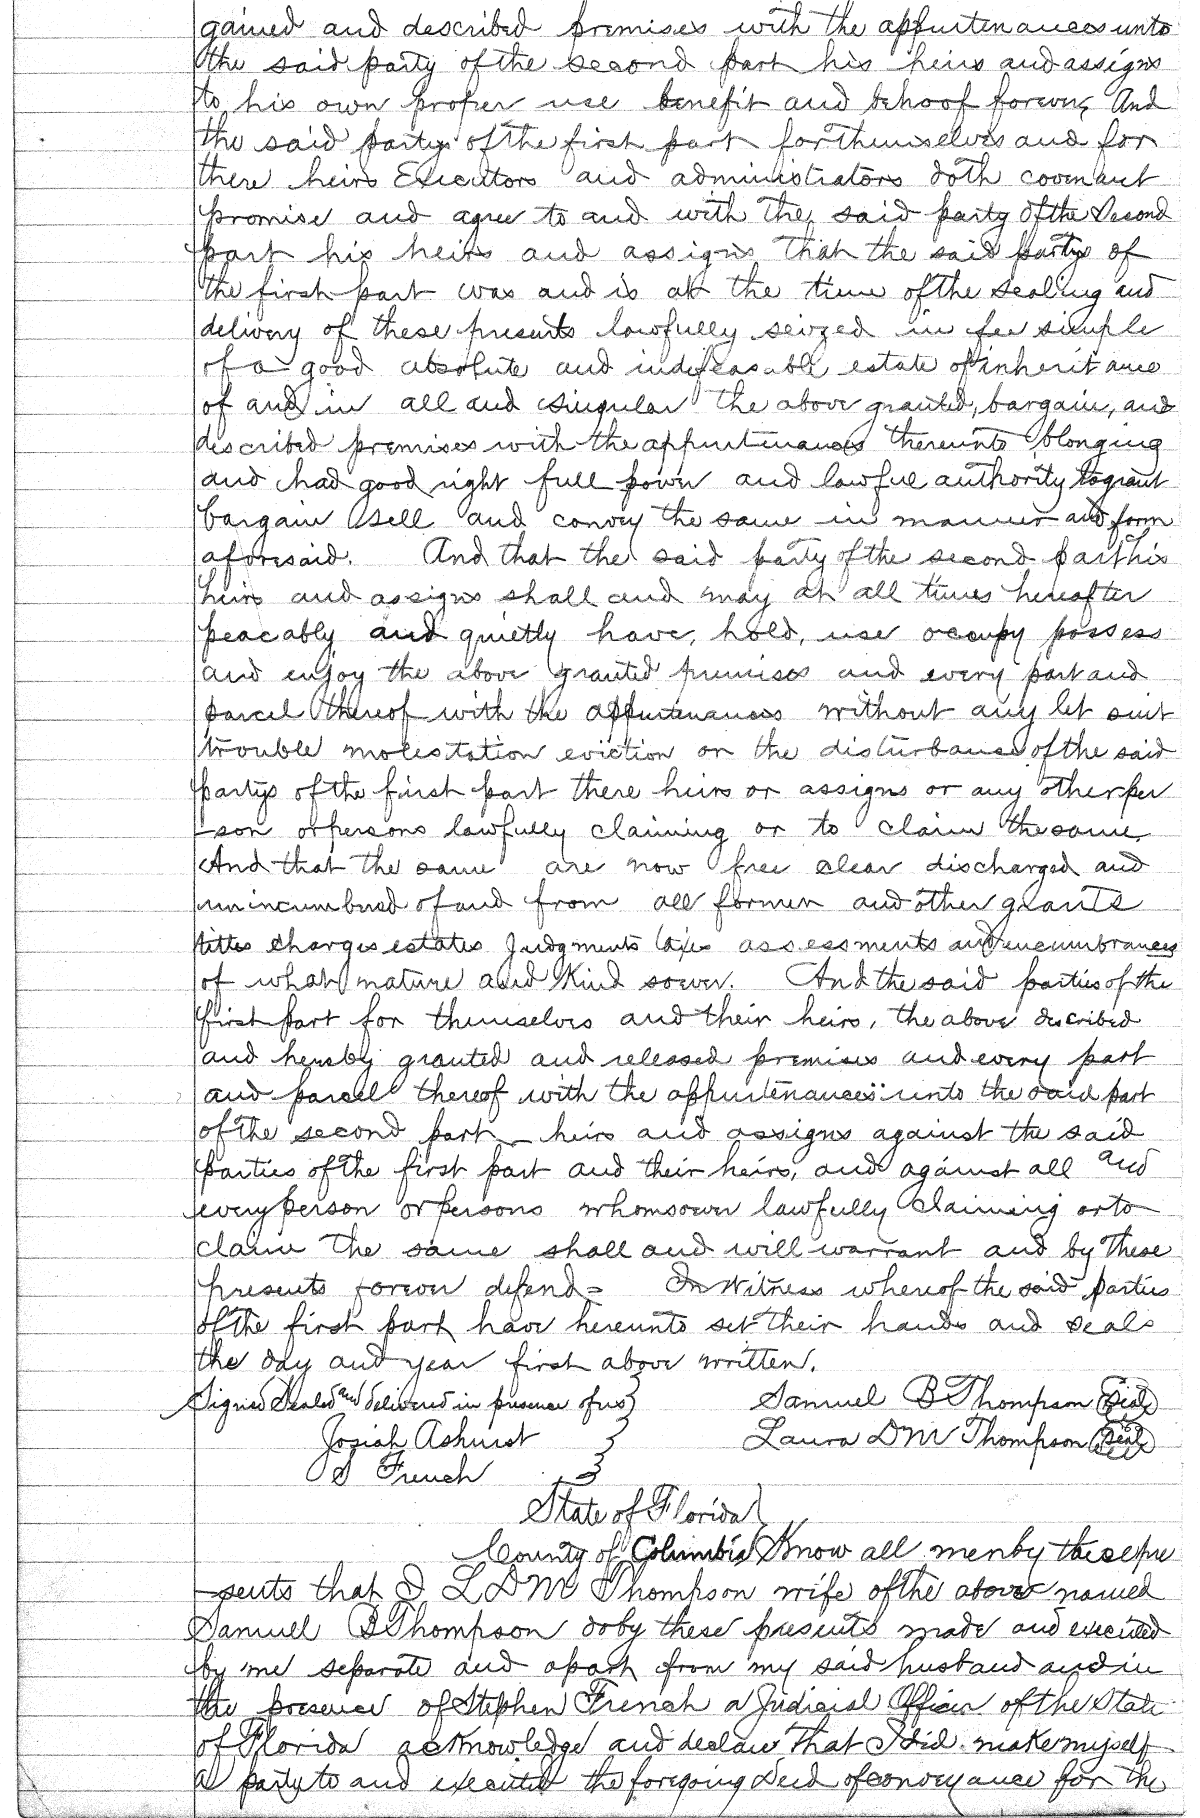 gained and described premises with the appurtenances unto
the said party of the second part his heirs and assigns
to his own proper use benefit and behoof forever, And
the said partys of the first part for themselves and for
there heirs Executors and administrators doth covenant
promise and agree to and with the said party of the Second
part his heirs and assigns that the said partys of
the first part was and is at the time of the sealing and
delivery of these presents lawfully seized in fee simple
of a good absolute and indefeasable estate of inheritance
of and in all and singular the above granted, bargain, and
described premises with the appurtenances thereunto blonging
and had good right full power and lawful authority to grant
bargain sell and convey the same in manner and form
aforesaid. And that the said party of the second part his
heirs and assigns shall and may at all times hereafter
peacably and quietly have, hold, use occupy possess
and enjoy the above granted premises and every part and
parcel thereof with the appurtenances without any let suit
trouble molestation eviction or the disturbance of the said
partys of the first part there heirs or assigns or any other per
-son or persons lawfully claiming or to claim the same.
And that the same are now free clear discharged and
unincumbered of and from all former and other grants
titles charges estates Judgments taxes assessments and encumbrances
of what nature and Kind soever. And the said parties of the
first part for themselves and their heirs, the above described
and hereby granted and released premises and every part
and parcel thereof with the appurtenances unto the said part
of the second part heirs and assigns against the said
parties of the first part and their heirs, and against all and
every person or persons whomsoever lawfully claiming or to
claim the same shall and will warrant and by these
presents forever defend = In Witness whereof the said parties
of the first part have hereunto set their hands and seals
the day and year first above written.
Signed Sealed and delivered in presence of us Samuel B Thompson (Seal)
Josiah Ashurst Laura D M Thompson (Seal)
S French
State of Florida
County of Columbia Know all men by these pre
-sents that I L D M Thompson wife of the above named
Samuel B Thompson do by these presents made and executed
by me separate and apart from my said husband and in
the presence of Stephen French a Judicial Officer of the State
of Florida acknowledge and declare that I did make myself
a party to and executed the foregoing Deed of conveyance for the